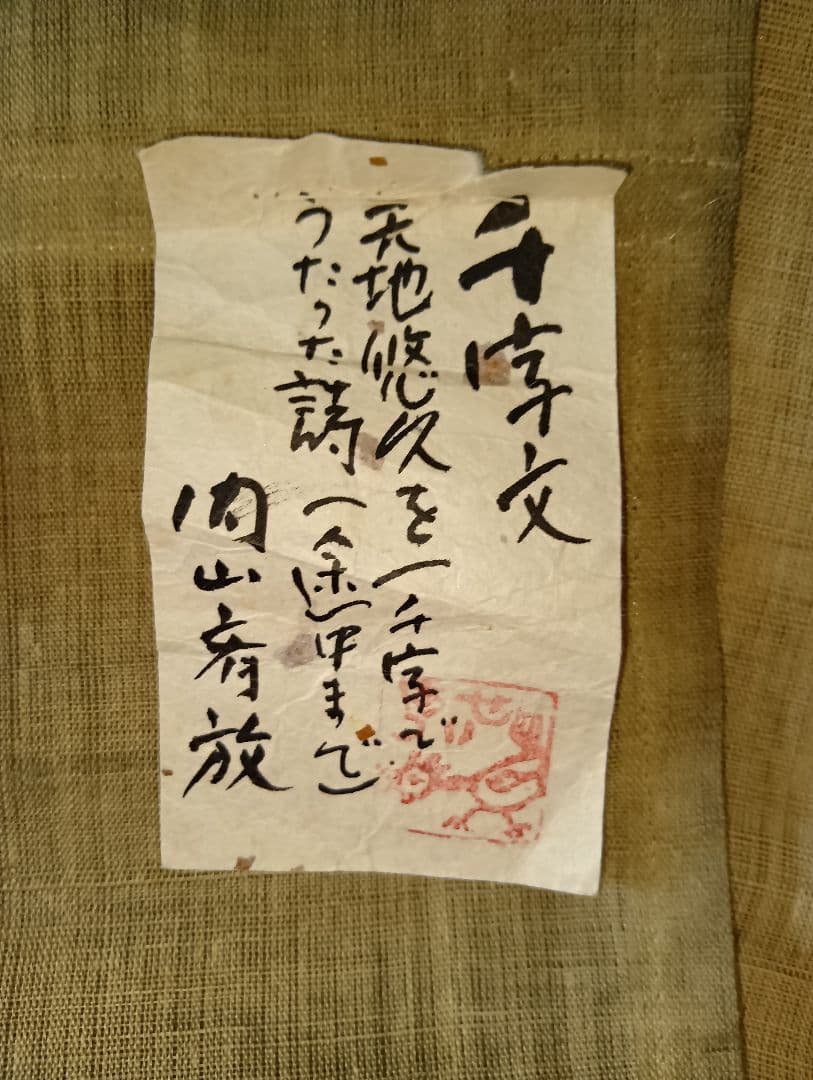 千字文
天地悠久を一千字で
うたった詩(途中まで)
内山春放